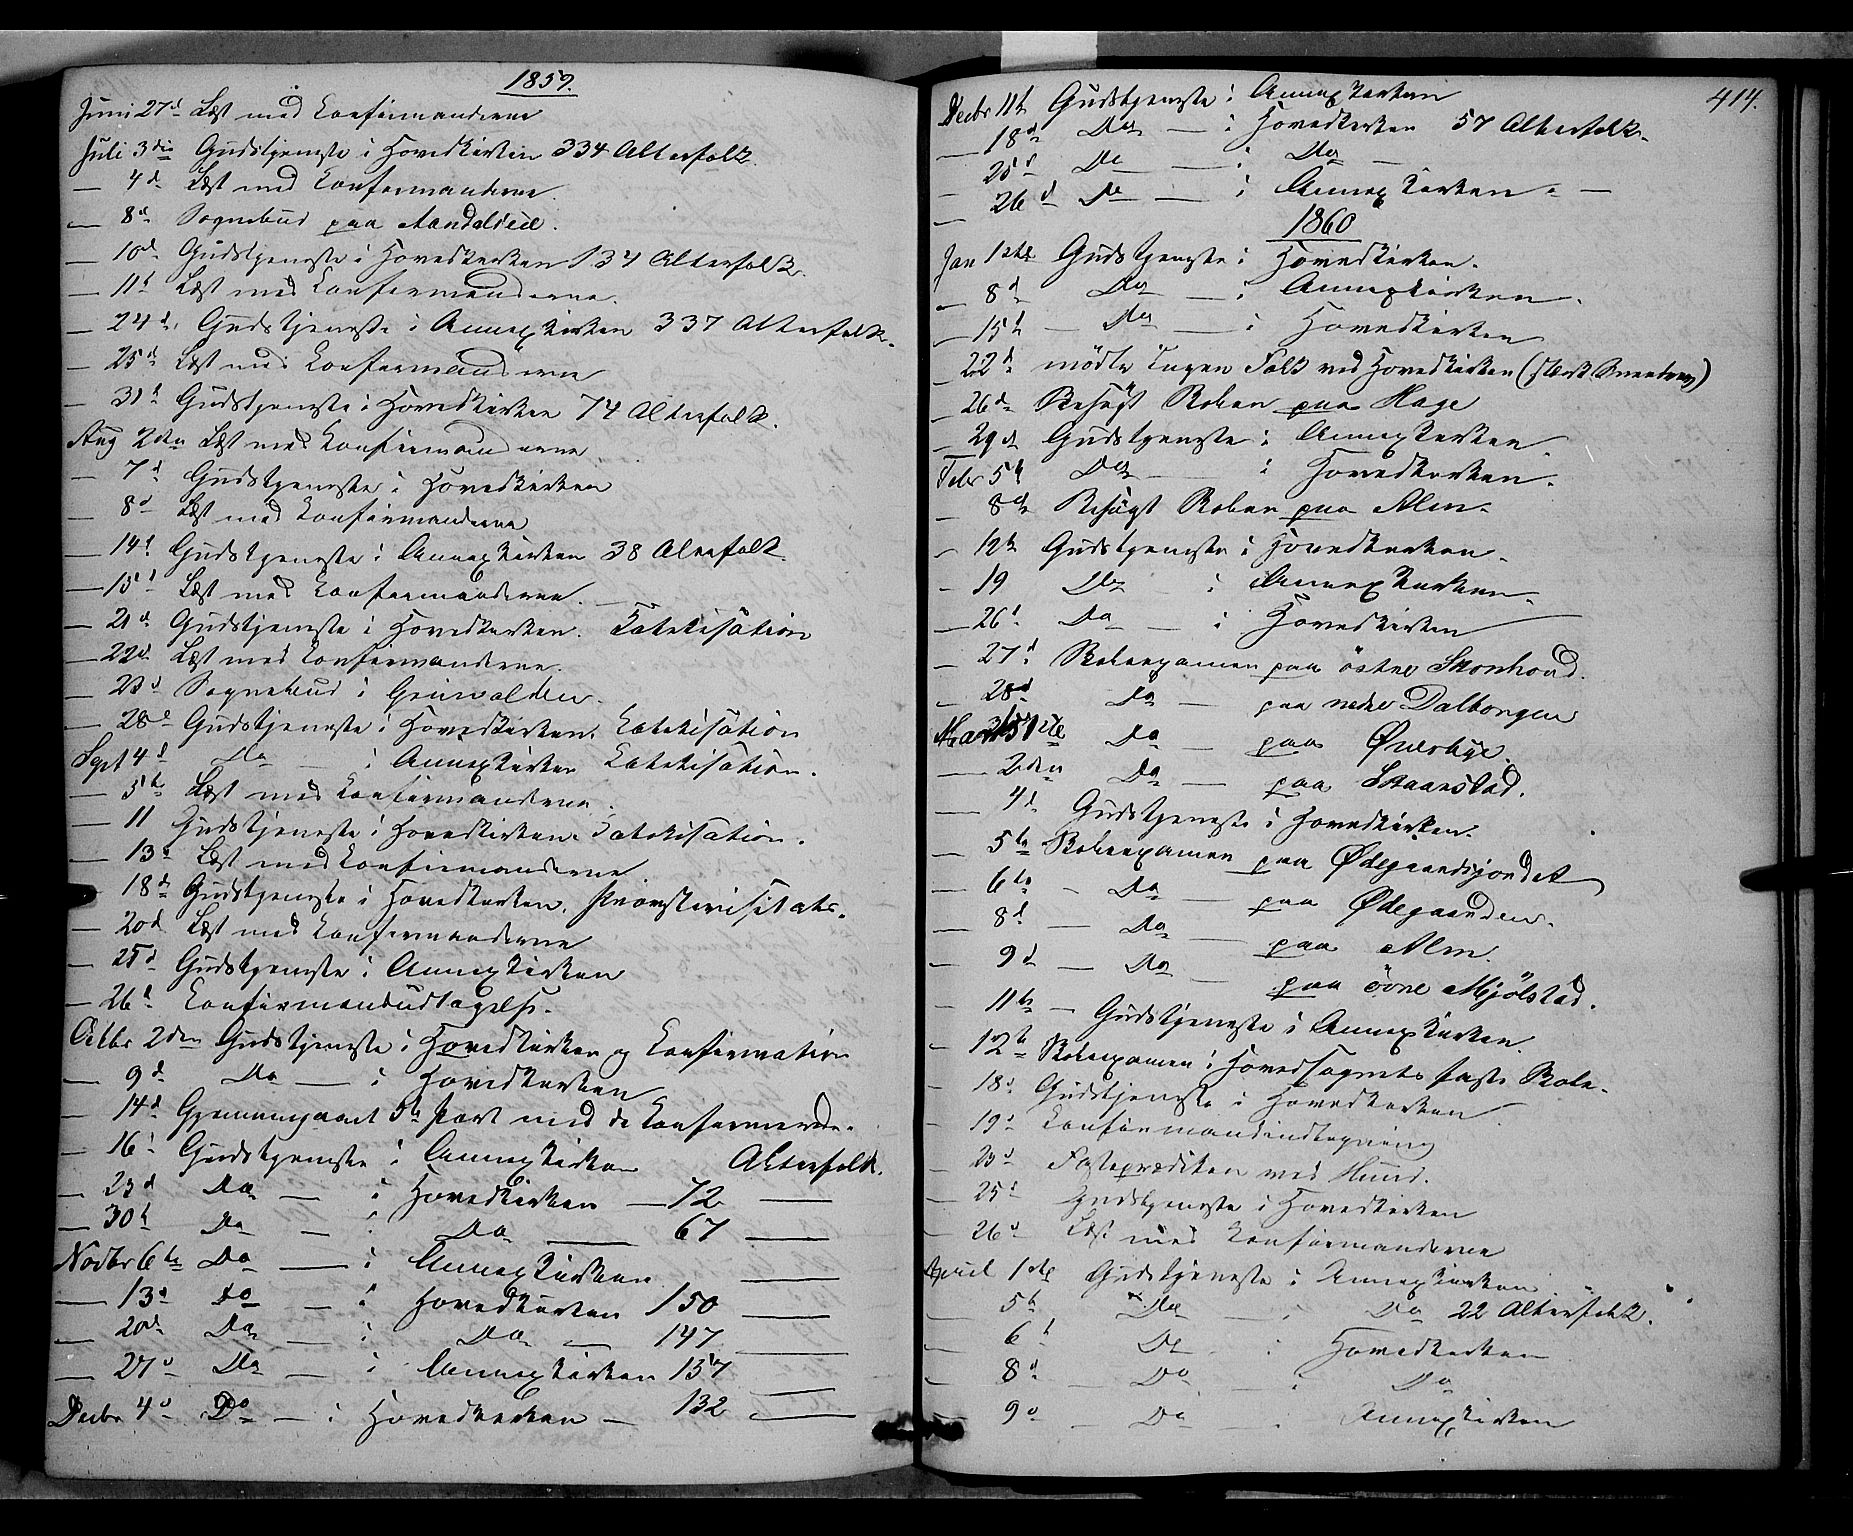 1859.
Juni 27d Læst med Confirmanderne
Juli 3die Gudstjeneste i Hovedkirken 334 Alterfolk.
— 4d Læst med Confirmanderne.
— 8d Sognebud paa
— 10d Gudstjeneste i Hovedkirken 134 Alterfolk.
— 11t Læst med Confirmanderne.
— 24d Gudstjeneste i Annexkirken 337 Alterfolk.
— 25d Læst med Confirmanderne
— 31t Gudstjeneste i Hovedkirken 74 Alterfolk.
Aug 2den Læst med Confirmanderne
— 7d Gudstjeneste i Hovedkirken
— 8d Læst med Confirmanderne
— 14d Gudstjeneste i Annexkirken 38 Alterfolk
— 15d Læst med Confirmanderne.
— 21d Gudstjeneste i Hovedkirken. Katekisation
— 22d Læst med Confirmanderne.
— 23d Sognebud i
— 28d Gudstjeneste i Hovedkirken. Katekisation
Sept 4d Do — i Annexkirken Katekisation.
— 5te Læst med Confirmanderne.
— 11 Gudstjeneste i Hovedkirken Katekisation.
— 13d Læst med Confirmanderne
— 18d Gudstjeneste i Hovedkirken. Provstevisitats.
— 20d Læst med Confirmanderne
— 25d Gudstjeneste i Annexkirken
— 26d Confirmandudtagelse.
Octbr 2den Gudstjeneste i Hovedkirken og Confirmation
— 9d Do — i Hovedkirken
— 14d Gjennemgaaet 5te Part med de Confirmerede.
— 16d Gudstjeneste i Annexkirken Alterfolk.
— 23d Do — i Hovedkirken — 72 —
— 30t Do — i Do — 67 —
Novbr 6te Do — i Annexkirken —
— 13d Do — i Hovedkirken 150 —
— 20d Do — i Do — 147 —
— 27d Do — i Annexkirken 157 —
Decbr 4d Do — i Hovedkirken — 132 —
414.
Decbr 11t Gudstjeneste i Annexkirken
— 18d Do — i Hovedkirken 57 Alterfolk.
— 25d Do — i Do —
— 26d Do — i Annexkirken. —
1860
Jan 1ste Gudstjeneste i Hovedkirken.
— 8d Do — i Annexkirken.
— 15d — Do — i Hovedkirken
— 22d mødte Ingen Folk ved Hovedkirken
— 26d Besøgt Skolen paa Hage
— 29d Gudstjeneste i Annexkirken.
Febr 5t Do i Hovedkirken.
— 8d Besøgt Skolen paa Alm.
— 12t Gudstjeneste i Hovedkirken.
— 19 Do i Annexkirken.
— 26d Do — i Hovedkirken
— 27d Skoleexamen paa østre
— 28d Do — paa nedre Dalbongen
Marts 1ste Do — paa Øversbye.
— 2den Do — paa Skaarstad.
— 4d Gudstjeneste i Hovedkirken.
— 5te Skoleexamen paa
— 6te — Do — paa Ødegaarden.
— 8d — Do — paa Alm.
— 9d — Do — paa øvre Mjølstad.
— 11te — Gudstjeneste i Annexkirken.
— 12t Skoleexamen i Hovedsognets faste Skole.
— 18d Gudstjeneste i Hovedkirken
— 19d Confirmandindtegning
— 23d Fasteprædiken ved Hund.
— 25d Gudstjeneste i Hovedkirken
— 26d Læst med Confirmanderne
April 1ste Gudstjeneste i Annexkirken
— 5t Do — i Do 22 Alterfolk.
— 6t Do i Hovedkirken
— 8d — Do — i Do
— 9d — Do i Annexkirken